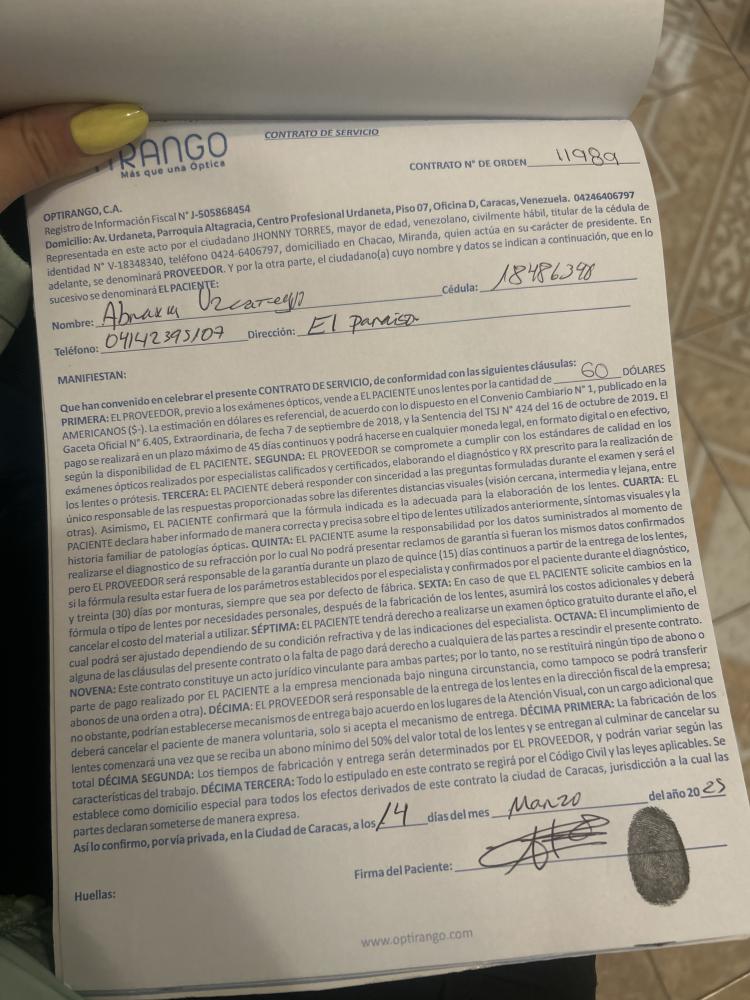 CONTRATO DE SERVICIO
TIRANGO
Más que una Óptica
CONTRATO N° DE ORDEN 11989
OPTIRANGO, C.A.
Registro de Información Fiscal N° J-505868454
Domicilio: Av. Urdaneta, Parroquia Altagracia, Centro Profesional Urdaneta, Piso 07, Oficina D, Caracas, Venezuela. 04246406797
Representada en este acto por el ciudadano JHONNY TORRES, mayor de edad, venezolano, civilmente hábil, titular de la cédula de
identidad N° V-18348340, teléfono 0424-6406797, domiciliado en Chacao, Miranda, quien actúa en su carácter de presidente. En
adelante, se denominará PROVEEDOR. Y por la otra parte, el ciudadano(a) cuyo nombre y datos se indican a continuación, que en lo
sucesivo se denominará EL PACIENTE:
Nombre: Cédula: 18486398
Teléfono: 04142395107 Dirección: El paraiso
MANIFIESTAN:
Que han convenido en celebrar el presente CONTRATO DE SERVICIO, de conformidad con las siguientes cláusulas:
PRIMERA: EL PROVEEDOR, previo a los exámenes ópticos, vende a EL PACIENTE unos lentes por la cantidad de 60 DÓLARES
AMERICANOS ($-). La estimación en dólares es referencial, de acuerdo con lo dispuesto en el Convenio Cambiario N° 1, publicado en la
Gaceta Oficial N° 6.405, Extraordinaria, de fecha 7 de septiembre de 2018, y la Sentencia del TSJ N° 424 del 16 de octubre de 2019. El
pago se realizará en un plazo máximo de 45 días continuos y podrá hacerse en cualquier moneda legal, en formato digital o en efectivo,
según la disponibilidad de EL PACIENTE. SEGUNDA: EL PROVEEDOR se compromete a cumplir con los estándares de calidad en los
exámenes ópticos realizados por especialistas calificados y certificados, elaborando el diagnóstico y RX prescrito para la realización de
los lentes o prótesis. TERCERA: EL PACIENTE deberá responder con sinceridad a las preguntas formuladas durante el examen y será el
único responsable de las respuestas proporcionadas sobre las diferentes distancias visuales (visión cercana, intermedia y lejana, entre
otras). Asimismo, EL PACIENTE confirmará que la fórmula indicada es la adecuada para la elaboración de los lentes. CUARTA: EL
PACIENTE declara haber informado de manera correcta y precisa sobre el tipo de lentes utilizados anteriormente, síntomas visuales y la
historia familiar de patologías ópticas. QUINTA: EL PACIENTE asume la responsabilidad por los datos suministrados al momento de
realizarse el diagnostico de su refracción por lo cual No podrá presentar reclamos de garantía si fueran los mismos datos confirmados
pero EL PROVEEDOR será responsable de la garantía durante un plazo de quince (15) días continuos a partir de la entrega de los lentes,
si la fórmula resulta estar fuera de los parámetros establecidos por el especialista y confirmados por el paciente durante el diagnóstico,
y treinta (30) días por monturas, siempre que sea por defecto de fábrica. SEXTA: En caso de que EL PACIENTE solicite cambios en la
fórmula o tipo de lentes por necesidades personales, después de la fabricación de los lentes, asumirá los costos adicionales y deberá
cancelar el costo del material a utilizar. SÉPTIMA: EL PACIENTE tendrá derecho a realizarse un examen óptico gratuito durante el año, el
cual podrá ser ajustado dependiendo de su condición refractiva y de las indicaciones del especialista. OCTAVA: El incumplimiento de
alguna de las cláusulas del presente contrato o la falta de pago dará derecho a cualquiera de las partes a rescindir el presente contrato.
NOVENA: Este contrato constituye un acto jurídico vinculante para ambas partes; por lo tanto, no se restituirá ningún tipo de abono o
parte de pago realizado por EL PACIENTE a la empresa mencionada bajo ninguna circunstancia, como tampoco se podrá transferir
abonos de una orden a otra). DÉCIMA: EL PROVEEDOR será responsable de la entrega de los lentes en la dirección fiscal de la empresa;
no obstante, podrían establecerse mecanismos de entrega bajo acuerdo en los lugares de la Atención Visual, con un cargo adicional que
deberá cancelar el paciente de manera voluntaria, solo si acepta el mecanismo de entrega. DÉCIMA PRIMERA: La fabricación de los
lentes comenzará una vez que se reciba un abono mínimo del 50% del valor total de los lentes y se entregan al culminar de cancelar su
total DÉCIMA SEGUNDA: Los tiempos de fabricación y entrega serán determinados por EL PROVEEDOR, y podrán variar según las
características del trabajo. DÉCIMA TERCERA: Todo lo estipulado en este contrato se regirá por el Código Civil y las leyes aplicables. Se
establece como domicilio especial para todos los efectos derivados de este contrato la ciudad de Caracas, jurisdicción a la cual las
partes declaran someterse de manera expresa.
Así lo confirmo, por vía privada, en la Ciudad de Caracas, a los 14 días del mes Marzo del año 2025
Firma del Paciente:
Huellas:
www.optirango.com